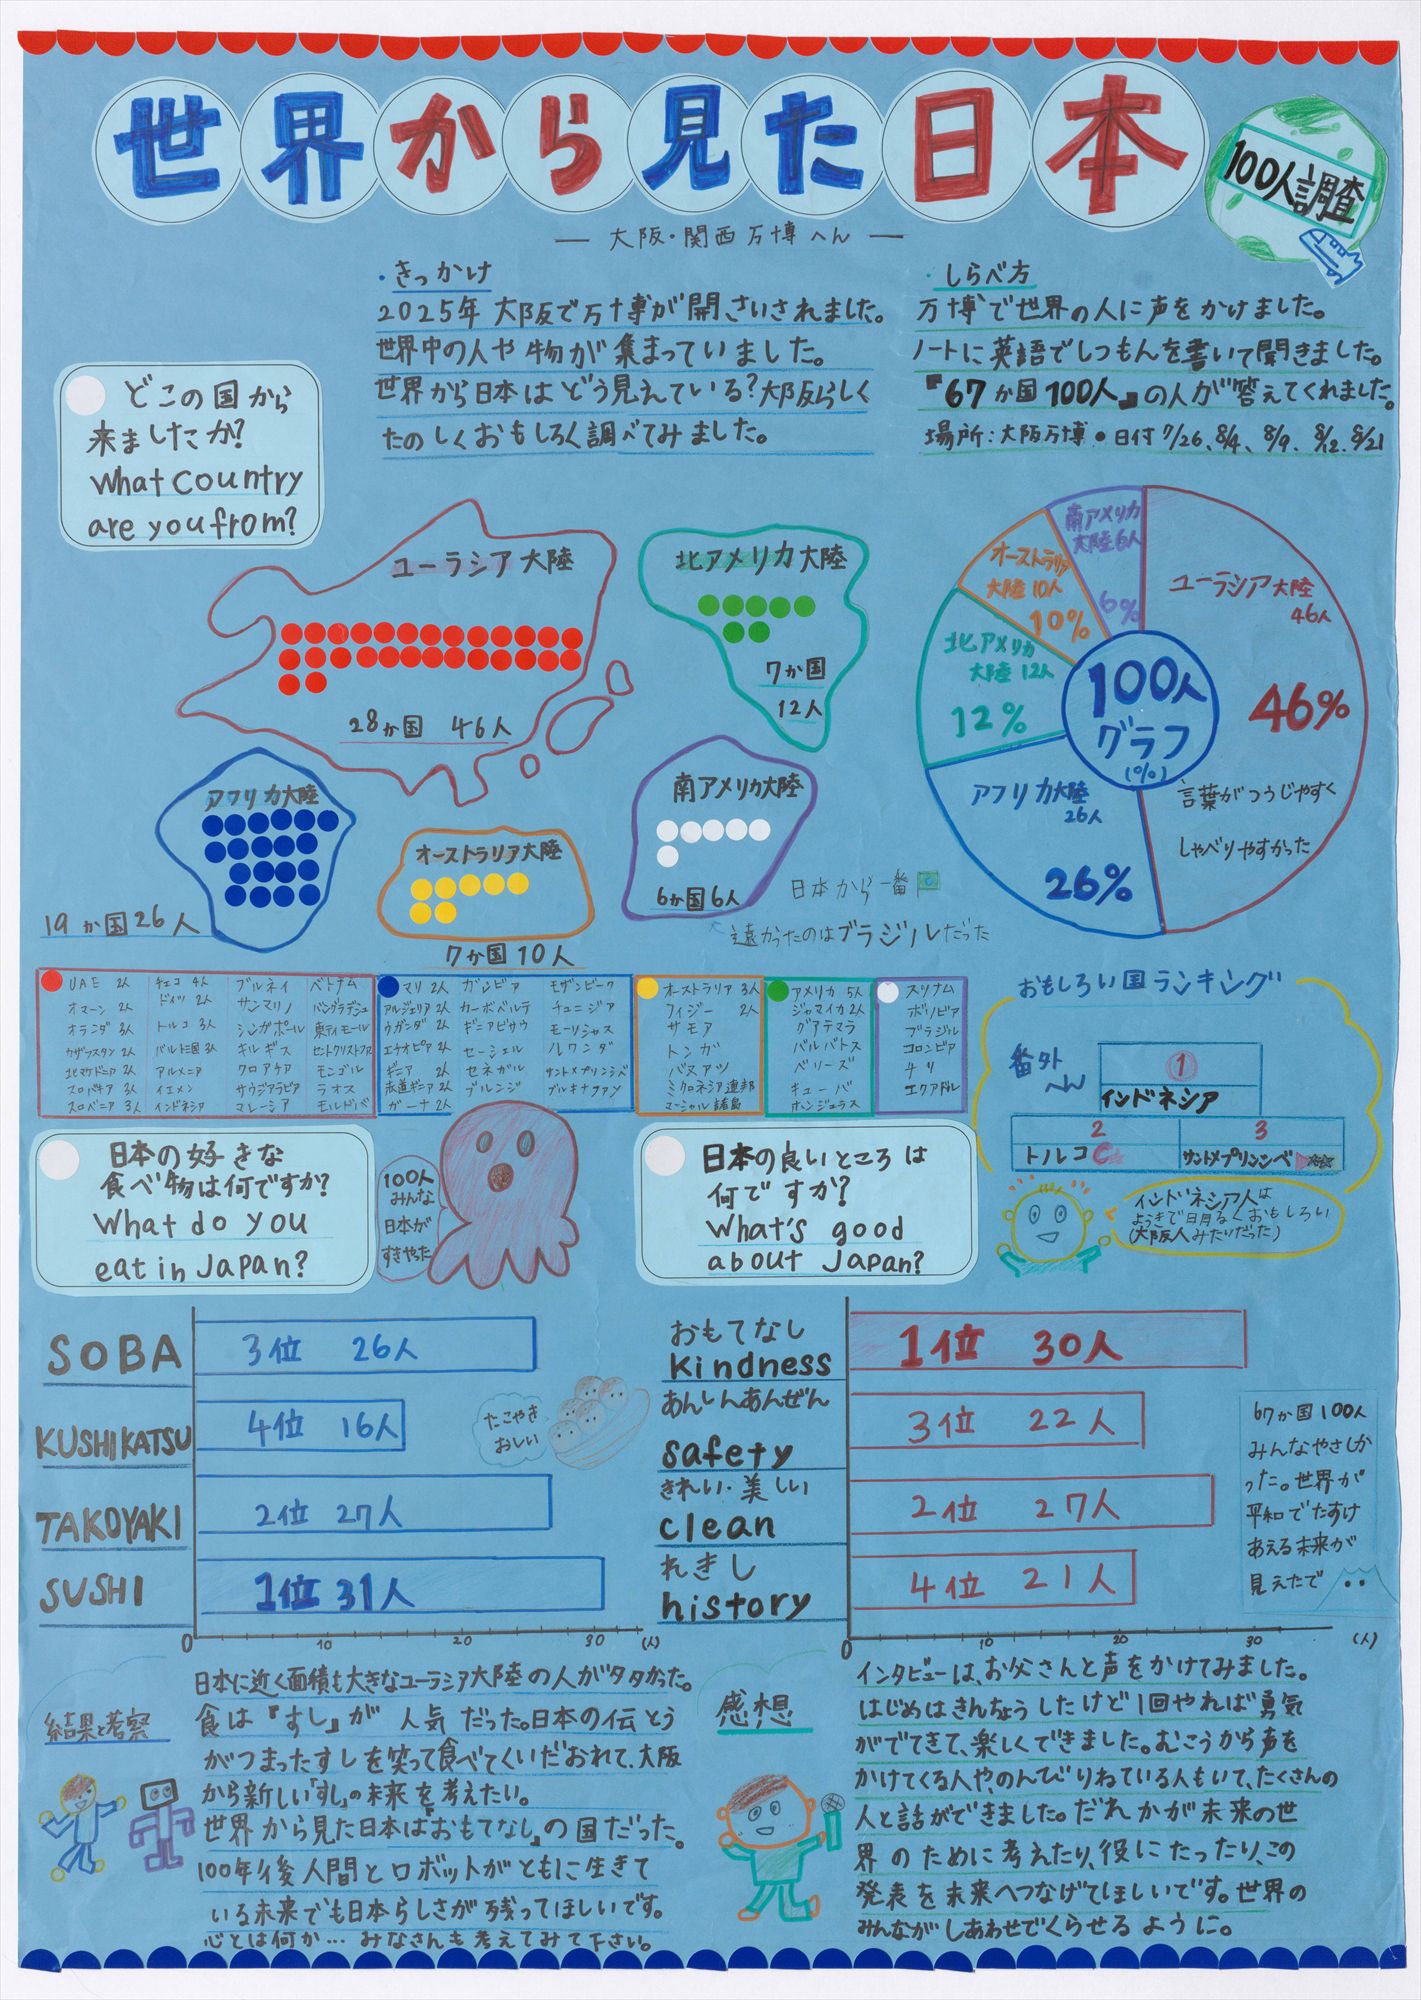 世界から見た日本
100人調査
― 大阪・関西万博へん ―
・きっかけ
2025年 大阪で万博が開さいされました。
世界中の人や物が集まっていました。
世界から日本はどう見えている?大阪らしく
たのしくおもしろく調べてみました。
・しらべ方
万博で世界の人に声をかけました。
ノートに英語でしつもんを書いて聞きました。
『67か国100人』の人が答えてくれました。
場所:大阪万博 ● 日付 7/26、8/4、8/9、8/12、8/21
どこの国から
来ましたか?
What country
are you from?
ユーラシア大陸
28か国 46人
北アメリカ大陸
7か国
12人
アフリカ大陸
19か国26人
オーストラリア大陸
7か国10人
南アメリカ大陸
6か国6人
日本から一番
遠かったのはブラジルだった
100人
グラフ
(%)
ユーラシア大陸
46人
46%
言葉がつうじやすく
しゃべりやすかった
アフリカ大陸
26人
26%
北アメリカ
大陸12人
12%
オーストラリア
大陸10人
10%
南アメリカ
大陸6人
6%
UAE 2人 チェコ 4人 ブルネイ ベトナム
オマーン 2人 ドイツ 2人 サンマリノ バングラデシュ
オランダ 3人 トルコ 3人 シンガポール 東ティモール
カザフスタン 2人 バルト三国 3人 キルギス セントクリストファ
北マケドニア 2人 アルメニア クロアチア モンゴル
スロバキア 3人 イエメン サウジアラビア ラオス
スロベニア 3人 インドネシア マレーシア モルドバ
マリ 2人 ガンビア モザンビーク
アルジェリア 2人 カーボベルテ チュニジア
ウガンダ 2人 ギニアビサウ モーリシャス
エチオピア 2人 セーシェル ルワンダ
ギニア 2人 セネガル サントメプリンシペ
赤道ギニア 2人 ブルンジ ブルキナファソ
ガーナ 2人
オーストラリア 3人
フィジー 2人
サモア
トンガ
バヌアツ
ミクロネシア連邦
マーシャル諸島
アメリカ 5人
ジャマイカ 2人
グアテマラ
バルバトス
ベリーズ
キューバ
ホンジュラス
スリナム
ボリビア
ブラジル
コロンビア
チリ
エクアドル
おもしろい国ランキング
番外
へん
1
インドネシア
2
トルコ
3
サントメプリンシペ
インドネシア人は
ようきで明るくおもしろい
(大阪人みたいだった)
日本の好きな
食べ物は何ですか?
What do you
eat in Japan?
100人
みんな
日本が
すきやった
日本の良いところは
何ですか?
What's good
about Japan?
SOBA
3位 26人
KUSHIKATSU
4位 16人
たこやき
おいしい
TAKOYAKI
2位 27人
SUSHI
1位 31人
0 10 20 30 (人)
おもてなし
kindness
1位 30人
あんしんあんぜん
safety
3位 22人
きれい・美しい
clean
2位 27人
れきし
history
4位 21人
0 10 20 30 (人)
67か国100人
みんなやさしか
った。世界が
平和でたすけ
あえる未来が
見えたで
結果と考察
日本に近く面積も大きなユーラシア大陸の人が多かった。
食は『すし』が人気だった。日本の伝とう
がつまったすしを笑って食べてくいだおれて、大阪
から新しい「すし」の未来を考えたい。
世界から見た日本は『おもてなし』の国だった。
100年後人間とロボットがともに生きて
いる未来でも日本らしさが残ってほしいです。
心とは何か… みなさんも考えてみて下さい。
感想
インタビューは、お父さんと声をかけてみました。
はじめはきんちょうしたけど1回やれば勇気
がでてきて、楽しくできました。むこうから声を
かけてくる人や、のんびりねている人もいて、たくさんの
人と話ができました。だれかが未来の世
界のために考えたり、役にたったり、この
発表を未来へつなげてほしいです。世界の
みんながしあわせでくらせるように。